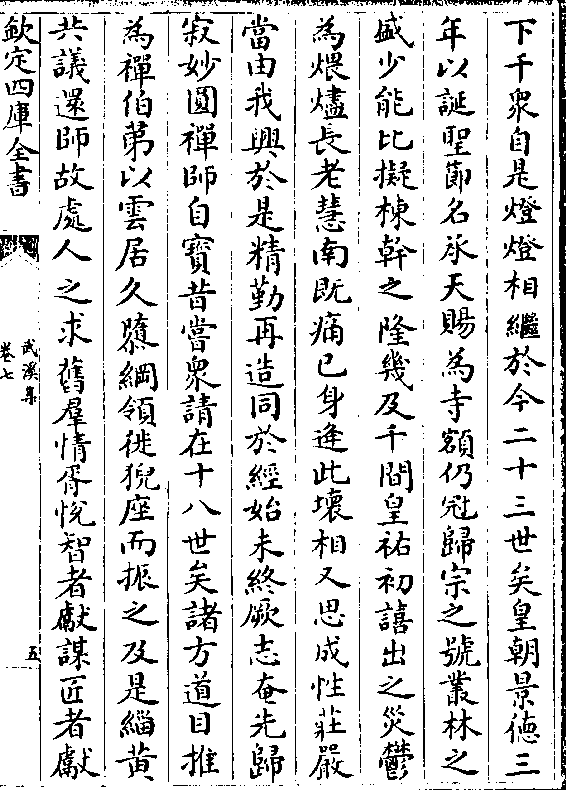 下千衆自是燈燈相繼於今二十三世矣皇朝景徳三
年以誕聖節名承天賜為寺額仍冠歸宗之號叢林之
盛少能比擬棟幹之隆幾及千間皇祐初譆出之災鬱
為煨燼長老慧南既痛已身逢此壊相又思成性莊嚴
當由我興於是精勤再造同於經始未終厥志奄先歸
寂妙圓禪師自寳昔嘗衆請在十八世矣諸方道目推
為禪伯弟以雲居久隳綱領徙猊座而振之及是緇黄
共議還師故處人之求舊羣情胥悅智者獻謀匠者獻
欽定四庫全書
武溪集
卷七
五